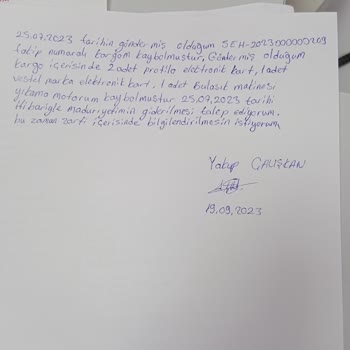 25.07.2023 tarihin göndermiş olduğum SEH-2023000000209
takip numaralı kargom kaybolmuştur. Göndermiş olduğum
kargo içerisinde 2 adet profilo elektronik kart, 1 adet
vestel marka elektronik kart, 1 adet bulaşık makinesi
yıkama motorum kaybolmuştur 25.07.2023 tarihi
itibariyle mağduriyetimin giderilmesi talep ediyorum.
bu zaman zarfı içerisinde bilgilendirilmesin istiyorum.
Yakup ÇALIŞKAN
19.09.2023